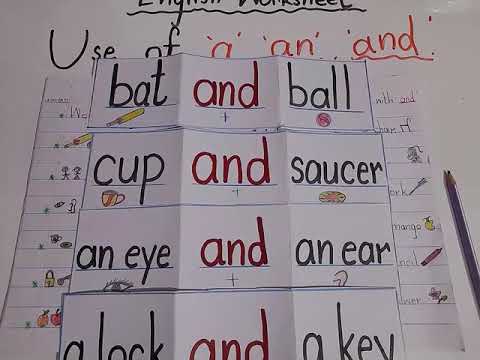 English Worksheet
Use of 'a' 'an' 'and'.
bat and ball
+
cup and saucer
+
an eye and an ear
+
a lock and a key
with and
mango